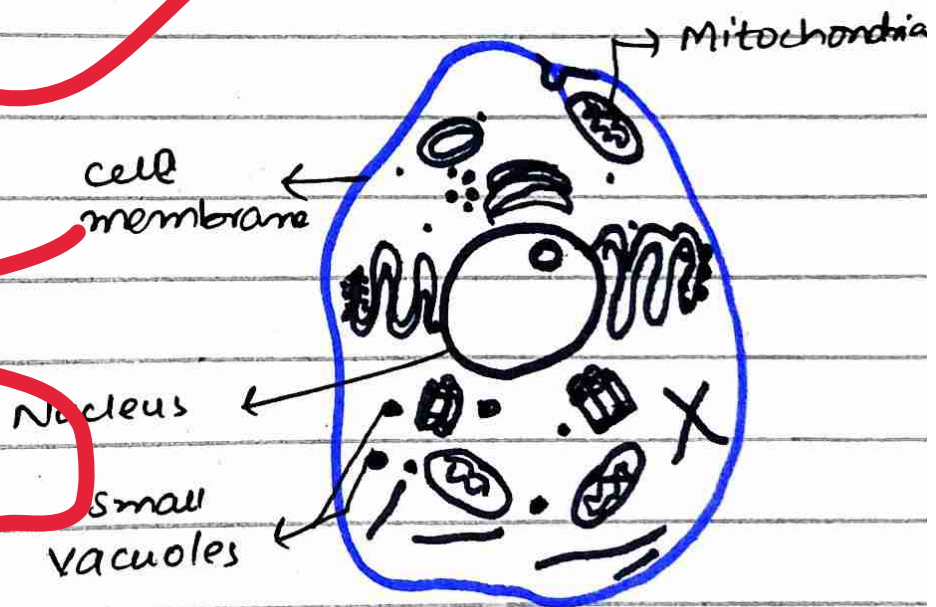 Mitochondria
cell
membrane
Nucleus
small
vacuoles